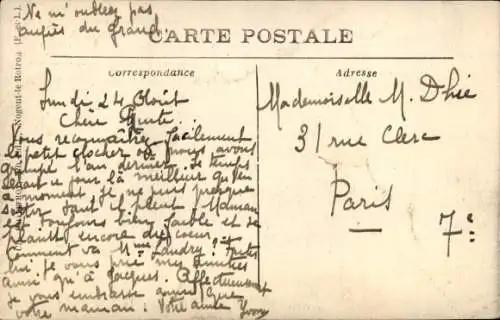 Ne m'oubliez pas
auprès du Grand
CARTE POSTALE
Correspondance
Adresse
Lundi 24 Août
Chère
Vous reconnaîtrez facilement
le petit clocher où nous avons
l'an dernier. Le temps
ce jour là meilleur qu'en
moment je ne puis presque
tant il pleut. Maman
est toujours bien faible et se
plaint encore du coeur.
Comment va Mme Landry? Faites
lui je vous prie mes amitiés
ainsi qu'à Jacques. Affectueusement
je vous embrasse ainsi que
votre maman: Votre amie Yvonne
Mademoiselle M. Dhié
31 rue Clerc
Paris
7e
Nogent-le-Rotrou (E.-et-L.)